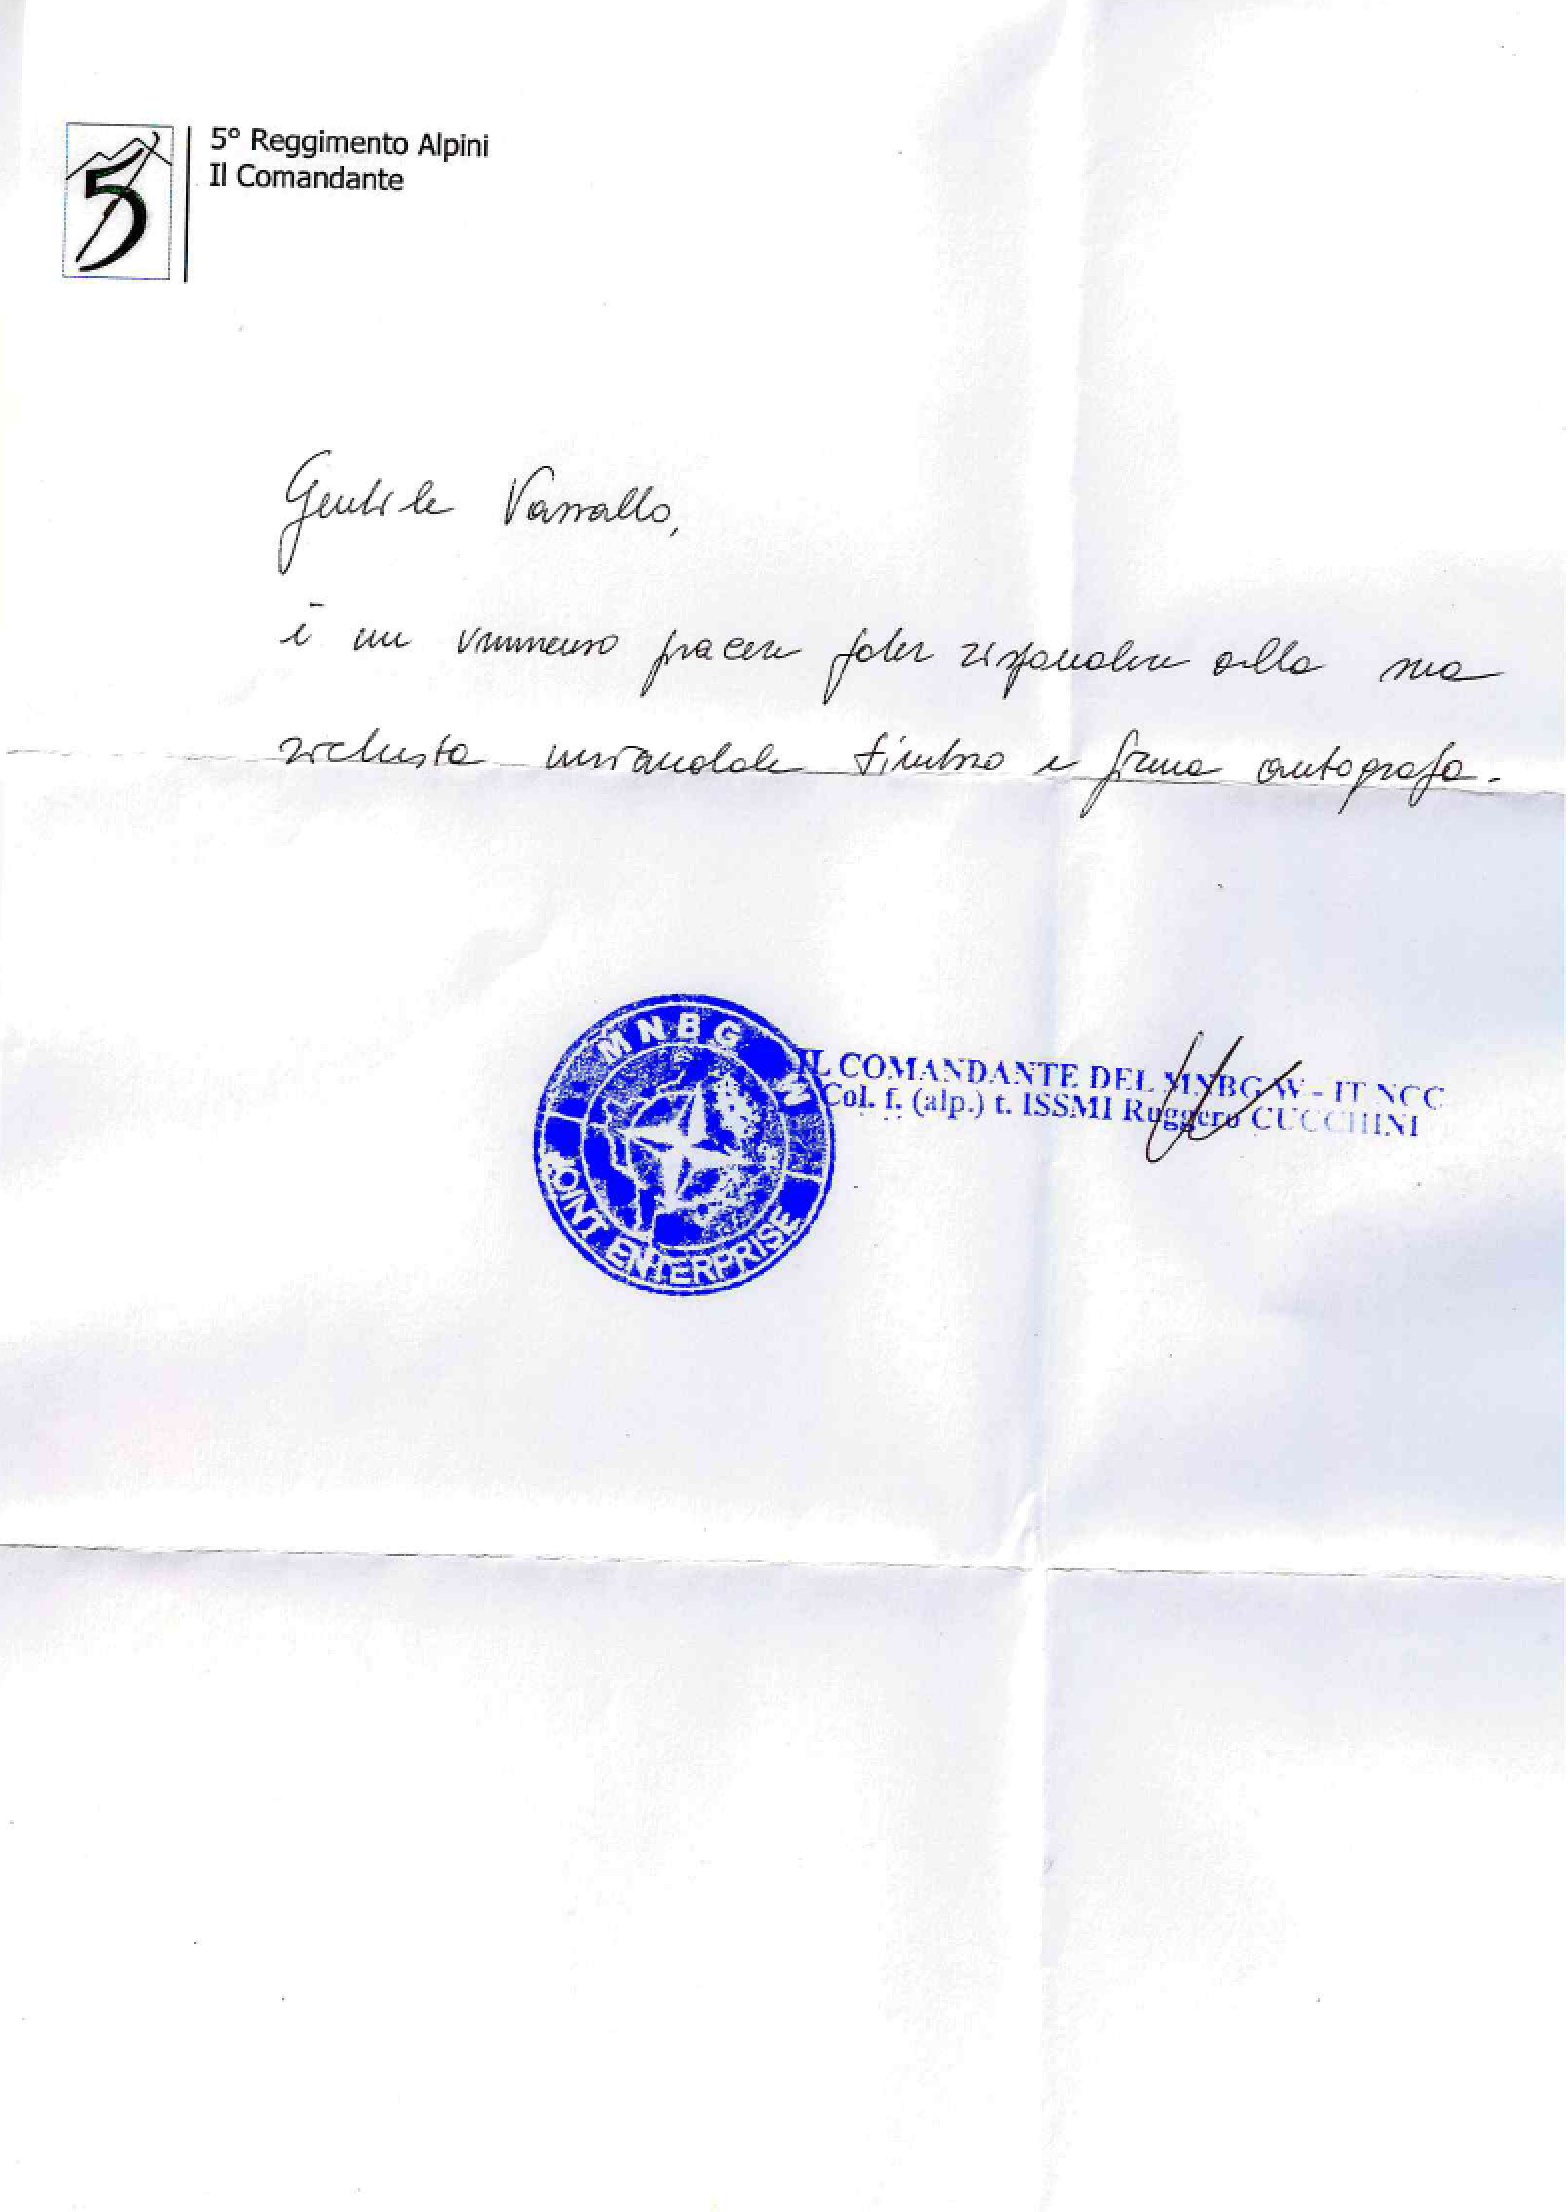 5
5° Reggimento Alpini
Il Comandante
Gentile Vassallo,
è un immenso piacere poter rispondere alla sua
richiesta inviandole timbro e firma autografa.
MNBG W
JOINT ENTERPRISE
IL COMANDANTE DEL MNBG W - IT NCC
Col. f. (alp.) t. ISSMI Ruggero CUCCHINI